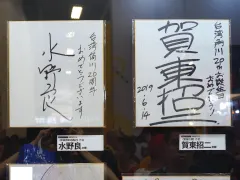 台湾角川20周年
おめでとうございます
水野良
水野良
賀東招二
台湾角川20周年
おめでとう
2019
6.14
賀東招二